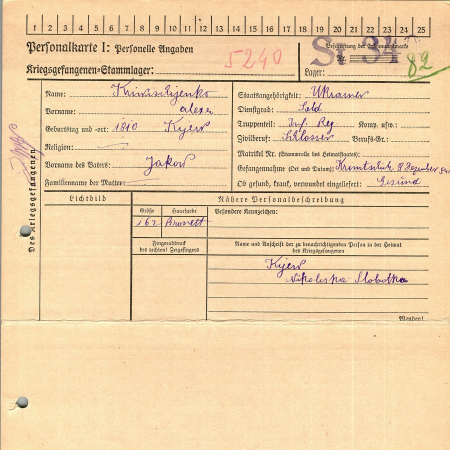 1 2 3 4 5 6 7 8 9 10 11 12 13 14 15 16 17 18 19 20 21 22 23 24 25
Personalkarte I: Personelle Angaben
Kriegsgefangenen-Stammlager:
5240
Beschriftung der Erkennungsmarke
Nr.
St 34
82
Lager:
Des Kriegsgefangenen
Name:
Vorname:
Geburtstag und -ort: 1910 Kyjew
Religion:
Vorname des Vaters: Jakow
Familienname der Mutter:
Staatsangehörigkeit: Ukrainer
Dienstgrad: Sold
Truppenteil: Inf. Reg Komp. usw.:
Zivilberuf: Schlosser Berufs-Gr.:
Matrikel Nr. (Stammrolle des Heimatstaates):
Gefangennahme (Ort und Datum): 8 Dezember
Ob gesund, krank, verwundet eingeliefert: Gesund
Lichtbild
Nähere Personalbeschreibung
Größe
Haarfarbe
Besondere Kennzeichen:
162
Fingerabdruck
des rechten Zeigefingers
Name und Anschrift der zu benachrichtigenden Person in der Heimat
des Kriegsgefangenen
Kyjew
Slobotka
Wenden!